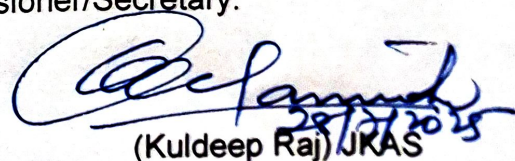 sioner/Secretary.
29/7/2025
(Kuldeep Raj) JKAS